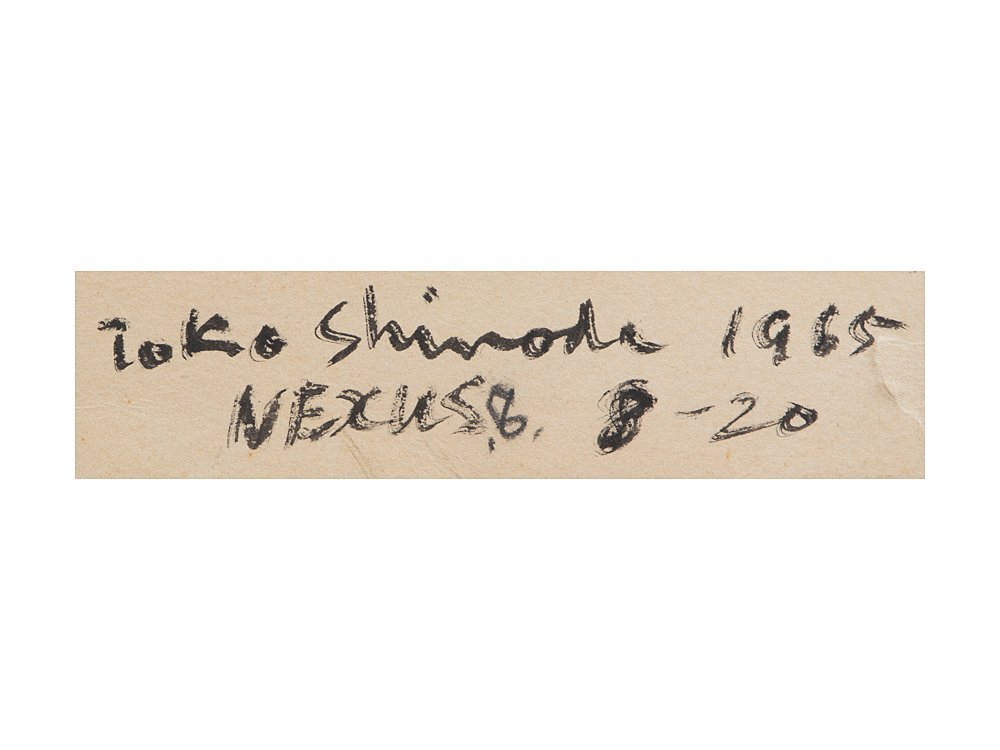 Toko Shinoda 1965
NEXUS.8. 8-20